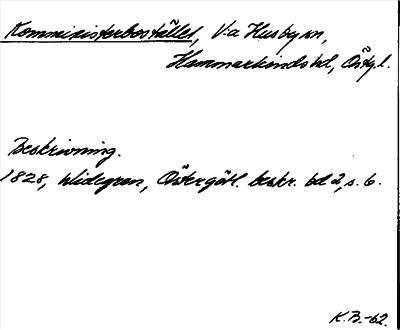 Kommissisterbostället, V:a Husby sn,
Hammarkinds hd, Östgl.
Beskrivning.
1828, Widegren, Östergötl. beskr. bd 2, s. 6.
K.B.-62.